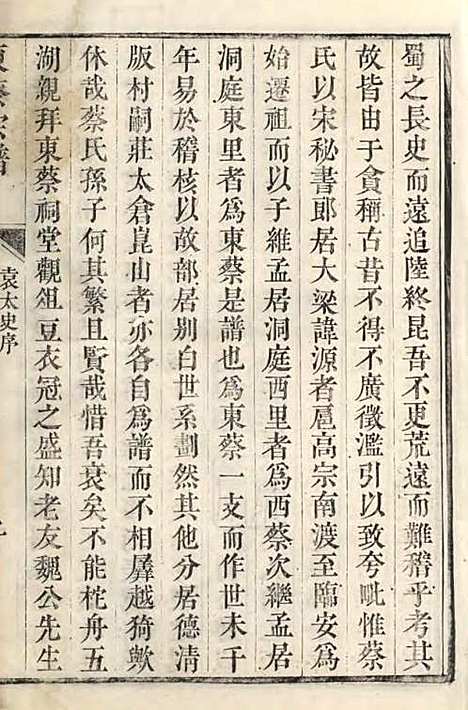 蜀之長史而遠追陸終昆吾不更荒遠而難稽乎考其
故皆由于貪稱古昔不得不廣徵濫引以致夸毗惟蔡
氏以宋秘書郎居大梁諱源者扈高宗南渡至臨安爲
始遷祖而以子維孟居洞庭西里者爲西蔡次繼孟居
洞庭東里者爲東蔡是譜也爲東蔡一支而作世未千
年易於稽核以故部居別白世系劃然其他分居德清
版村嗣莊太倉崑山者亦各自爲譜而不相羼越猗歟
休哉蔡氏孫子何其繁且賢哉惜吾衰矣不能柁舟五
湖親拜東蔡祠堂觀俎豆衣冠之盛知老友魏公先生
東蔡宗譜
袁太史序